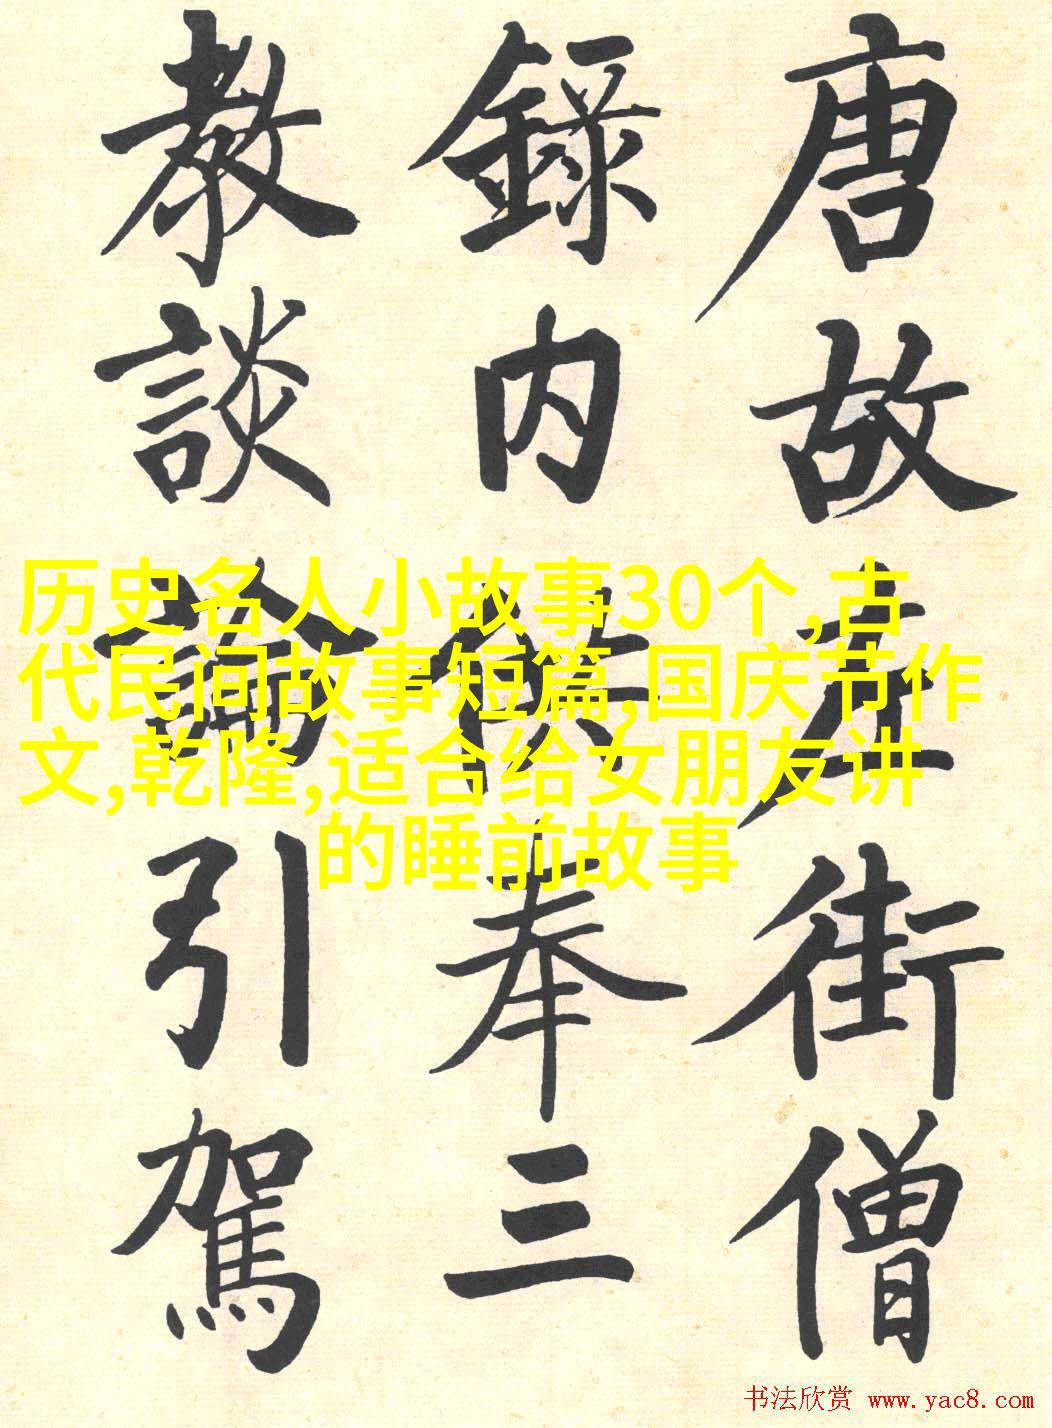 唐故左街僧
錄内供奉三
教談論引駕
历史名人小故事30个,古
代民间故事短篇,国庆节作
文,乾隆,适合给女朋友讲
的睡前故事
书法欣赏 www.yac8.com